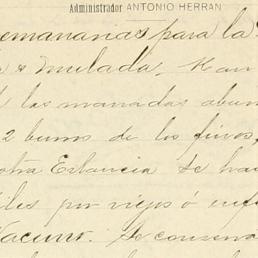 Administrador ANTONIO HERRAN
semananas para la
Mulada. Han
las manadas abun
2 burros de los finos,
otra Estancia se ha
por viejos ó enf
Vacuno. Se conserva